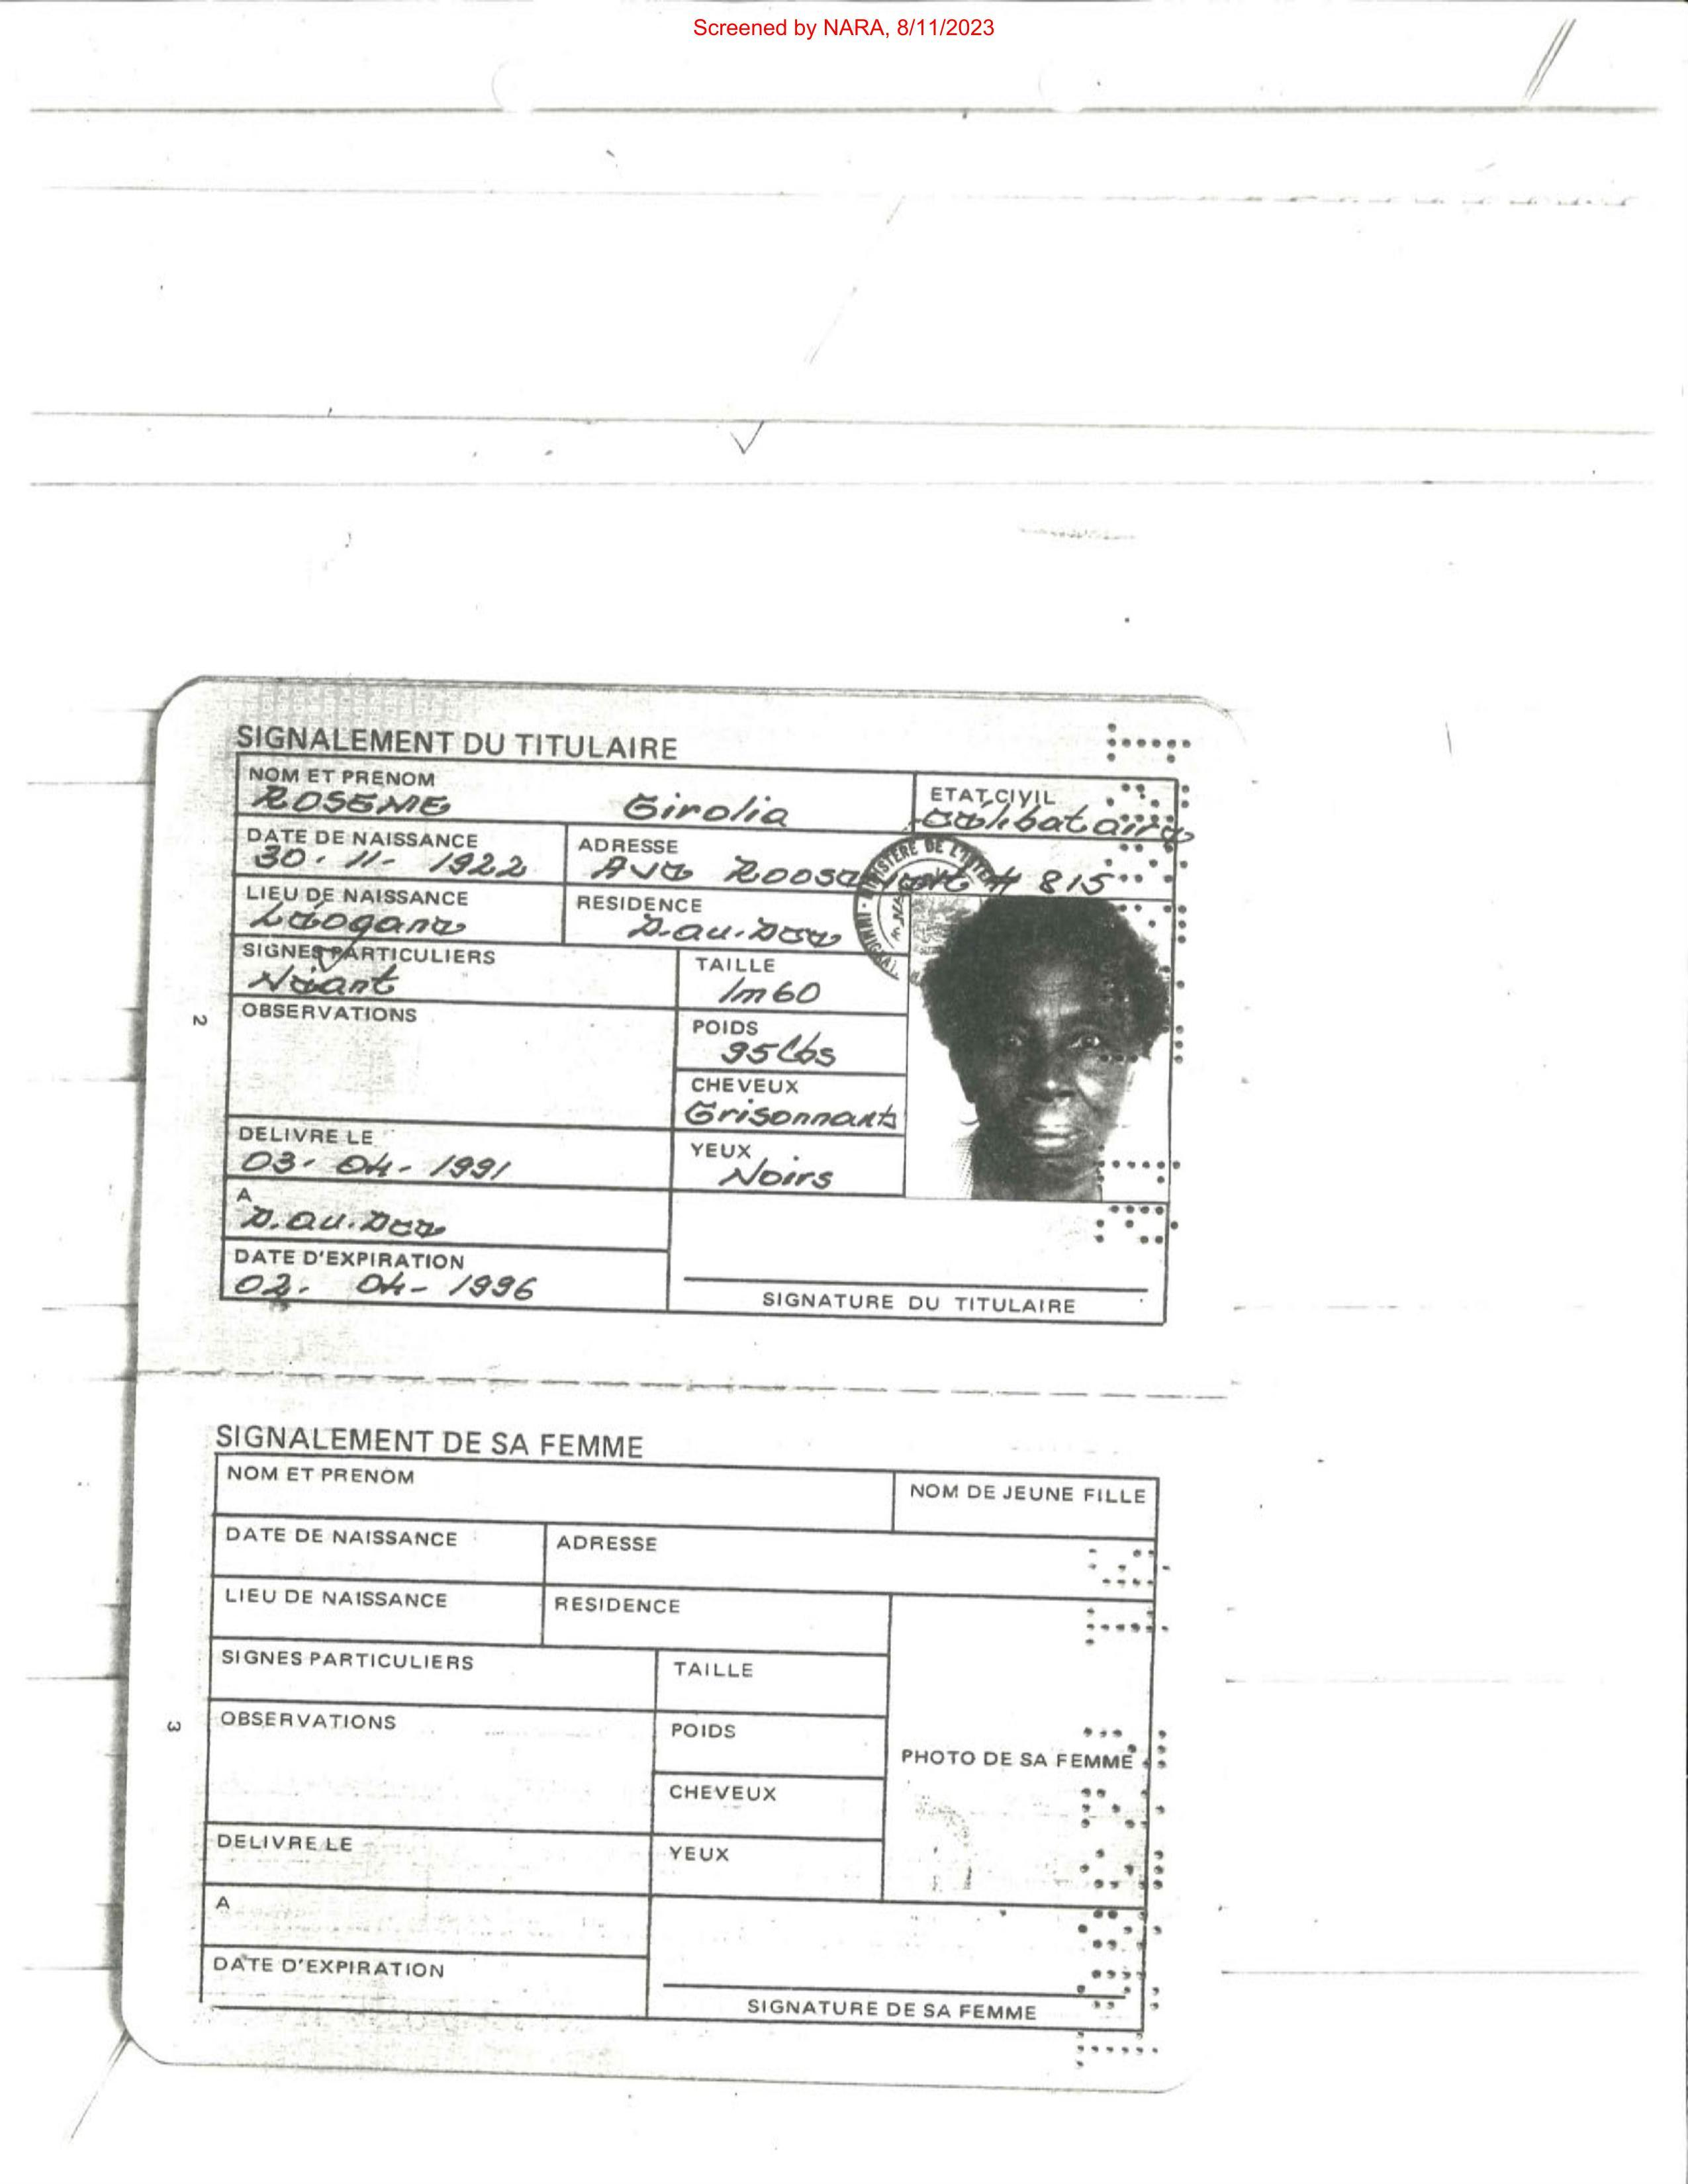 Screened by NARA, 8/11/2023
SIGNALEMENT DU TITULAIRE
NOM ET PRENOM
ROSEME Girolia
ETAT CIVIL
Célibataire
DATE DE NAISSANCE
30. 11- 1922
ADRESSE
Ave Roosevelt # 815
LIEU DE NAISSANCE
Léogane
RESIDENCE
P.au.Pce
SIGNES PARTICULIERS
Néant
TAILLE
1m60
OBSERVATIONS
POIDS
95 lbs
CHEVEUX
Grisonnants
DELIVRE LE
03. 04- 1991
YEUX
Noirs
A
P.au.Pce
DATE D'EXPIRATION
02. 04- 1996
SIGNATURE DU TITULAIRE
2
SIGNALEMENT DE SA FEMME
NOM ET PRENOM
NOM DE JEUNE FILLE
DATE DE NAISSANCE
ADRESSE
LIEU DE NAISSANCE
RESIDENCE
SIGNES PARTICULIERS
TAILLE
OBSERVATIONS
POIDS
PHOTO DE SA FEMME
CHEVEUX
DELIVRE LE
YEUX
A
DATE D'EXPIRATION
SIGNATURE DE SA FEMME
3